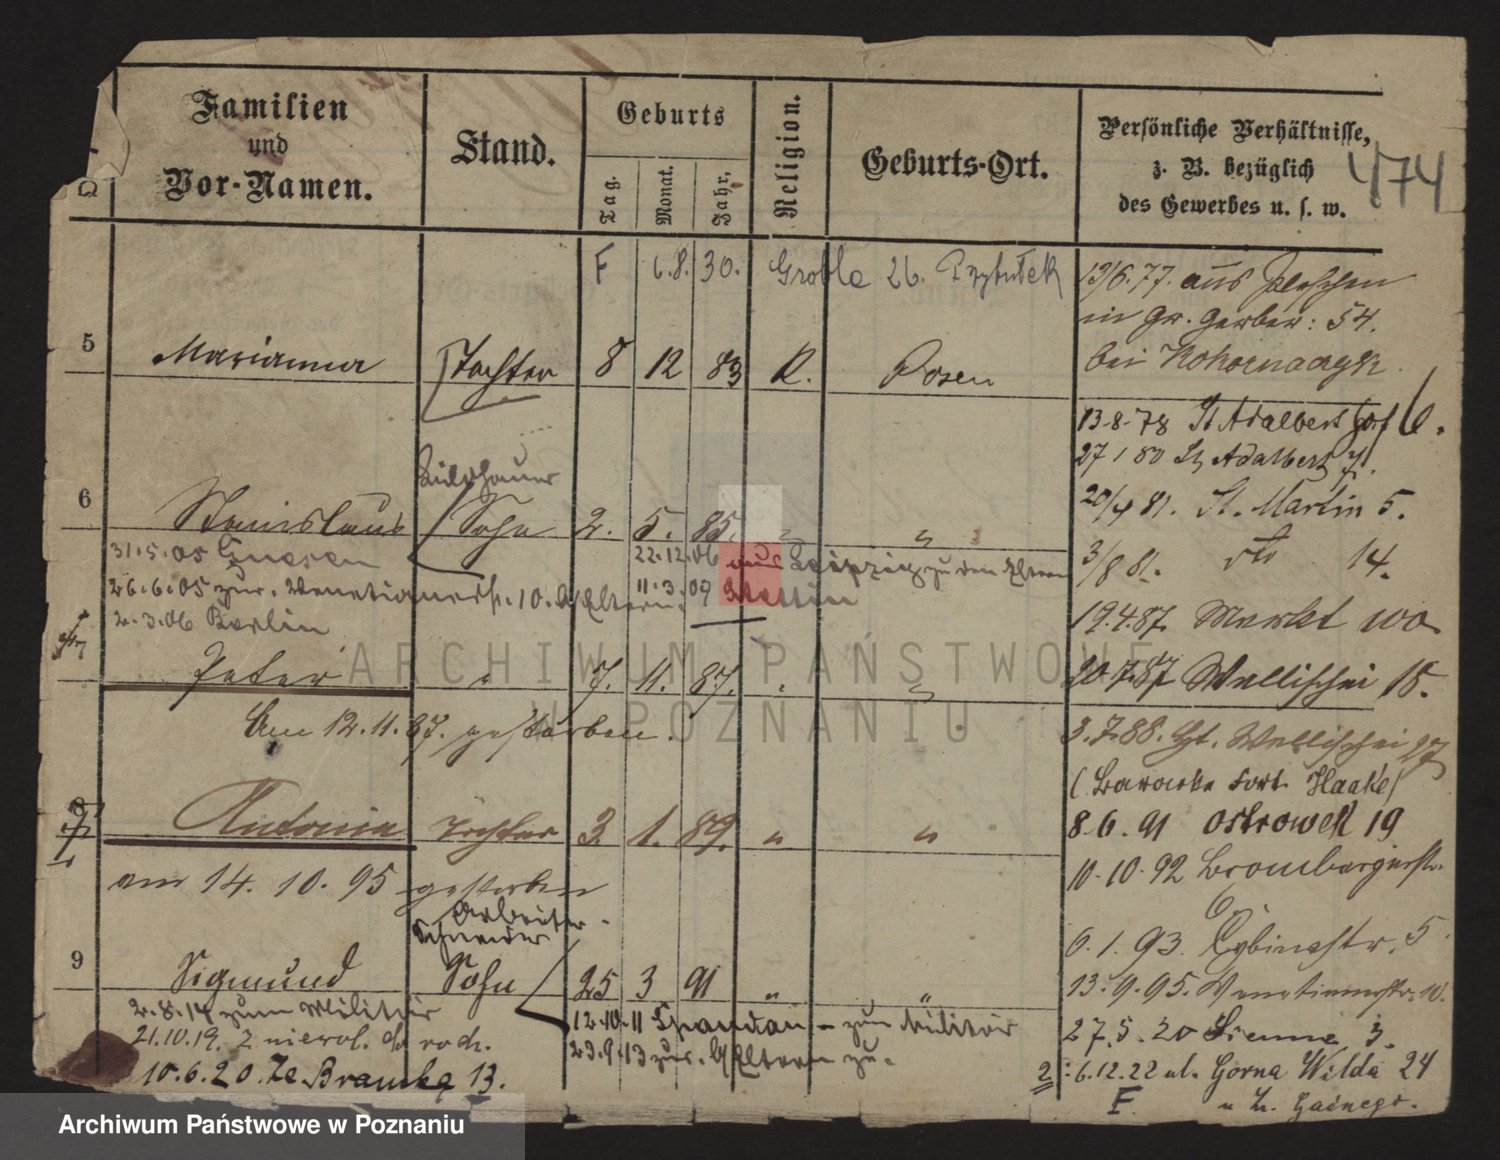 Familien
und
Vor-Namen.
Stand.
Geburts
Tag.
Monat.
Jahr.
Religion.
Geburts-Ort.
Persönliche Verhältnisse,
z. B. bezüglich
des Gewerbes u. s. w.
474
F 6.8.30. Grobla 26. Przytułek
13/6.77. aus Pleschen
in Gr. Gerber: 54.
bei
5 Marianna Tochter 8 12 83 K. Posen
13-8-78 St Adalbert 6.
27 1 80 St Adalbert
Bildhauer
6 Stanislaus Sohn 2. 5. 85. " "
20/4 81. St. Martin 5.
31.5.05 Gnesen
22.12.06 aus Leipzig zu den Eltern
3/8 81. dto 14.
26.6.05 zur. Venetianerstr. 10. a/Eltern.
11.3.09 Stettin
2.3.06 Berlin
19.4.87. Markt 100
7 Peter " 7. 11. 87. " "
20.7.87 Wallischei 18.
Am 12.11.87. gestorben.
3.7.88. Wallischei
(Baracke Fort Haake)
8 Antonia Tochter 3. 1. 89. " "
8.6.91 Ostrowek 19
am 14.10.95 gestorben
10.10.92 Brombergerstr.
6
Arbeiter
Schneider
6.1.93. Cybinastr. 5
9 Sigmund Sohn 25 3 91 " "
13.9.95. Venetianerstr. 10.
2.8.14 zum Militär
12.10.11 Spandau - zum Militär
27.5.20 3.
21.10.19. z niewol. do rodz.
23.9.13 zur. a/Eltern zu.
10.6.20. Za Bramką 13.
2 6.12.22 ul. Górna Wilda 24
F u
ARCHIWUM PAŃSTWOWE
W POZNANIU
Archiwum Państwowe w Poznaniu